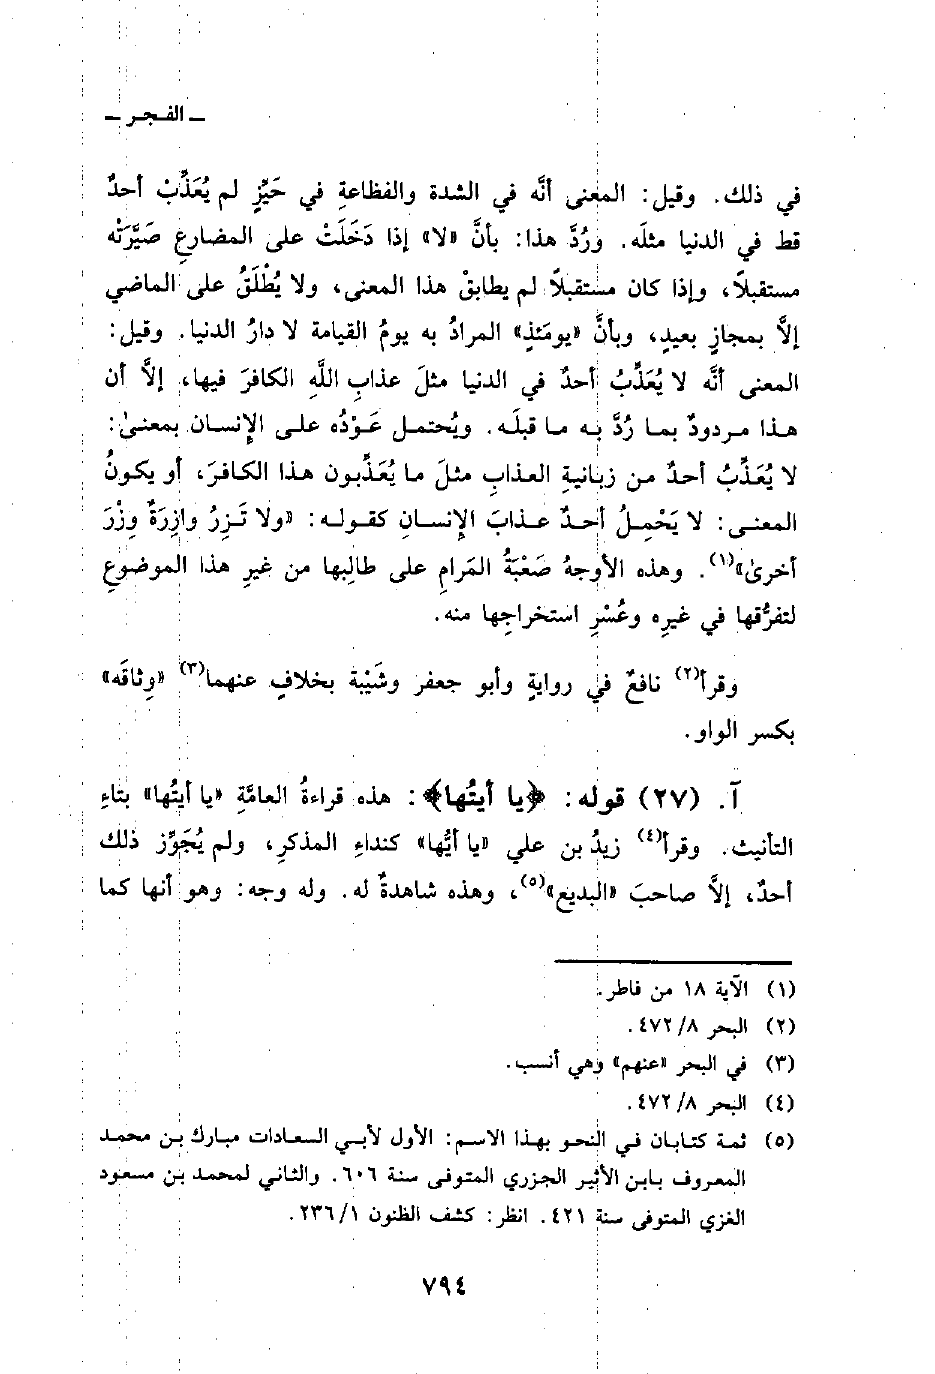 ـ الفـجـر ـ
في ذلك. وقيل: المعنى أنَّه في الشدة والفظاعةِ في حَيِّزٍ لم يُعَذِّبْ أحدٌ
قط في الدنيا مثلَه. ورُدَّ هذا: بأنَّ «لا» إذا دَخَلَتْ على المضارعِ صَيَّرَتْه
مستقبلاً، وإذا كان مستقبلاً لم يطابقْ هذا المعنى، ولا يُطْلَقُ على الماضي
إلاَّ بمجازٍ بعيدٍ، وبأنَّ «يومَئذٍ» المرادُ به يومُ القيامة لا دارُ الدنيا. وقيل:
المعنى أنَّه لا يُعَذِّبُ أحدٌ في الدنيا مثلَ عذابِ اللَّهِ الكافرَ فيها، إلاَّ أن
هذا مردودٌ بما رُدَّ به ما قبلَه. ويُحتمل عَوْدُه على الإِنسان بمعنىٰ:
لا يُعَذِّبُ أحدٌ من زبانيةِ العذابِ مثلَ ما يُعَذِّبون هذا الكافرَ، أو يكونُ
المعنى: لا يَحْمِلُ أحدٌ عذابَ الإِنسانِ كقوله: «ولا تَزِرُ وازِرَةٌ وِزْرَ
أخرىٰ»(١). وهذه الأوجهُ صَعْبَةُ المَرامِ على طالِبها من غيرِ هذا الموضوعِ
لتفرُّقها في غيرِه وعُسْرِ استخراجِها منه.
وقرأ(٢) نافعٌ في روايةٍ وأبو جعفر وشَيْبة بخلافٍ عنهما(٣) «وِثاقَه»
بكسر الواو.
آ. (٢٧) قوله: ﴿يا أيتُها﴾: هذه قراءةُ العامَّةِ «يا أيتُها» بتاءِ
التأنيث. وقرأ(٤) زيدُ بن علي «يا أيُّها» كنداءِ المذكرِ، ولم يُجَوِّز ذلك
أحدٌ، إلاَّ صاحبَ «البديع»(٥)، وهذه شاهدةٌ له. وله وجه: وهو أنها كما
(١) الآية ١٨ من فاطر.
(٢) البحر ٨/ ٤٧٢.
(٣) في البحر «عنهم» وهي أنسب.
(٤) البحر ٨/ ٤٧٢.
(٥) ثمة كتابان في النحو بهذا الاسم: الأول لأبي السعادات مبارك بن محمد
المعروف بابن الأثير الجزري المتوفى سنة ٦٠٦. والثاني لمحمد بن مسعود
الغزي المتوفى سنة ٤٢١. انظر: كشف الظنون ١/ ٢٣٦.
٧٩٤